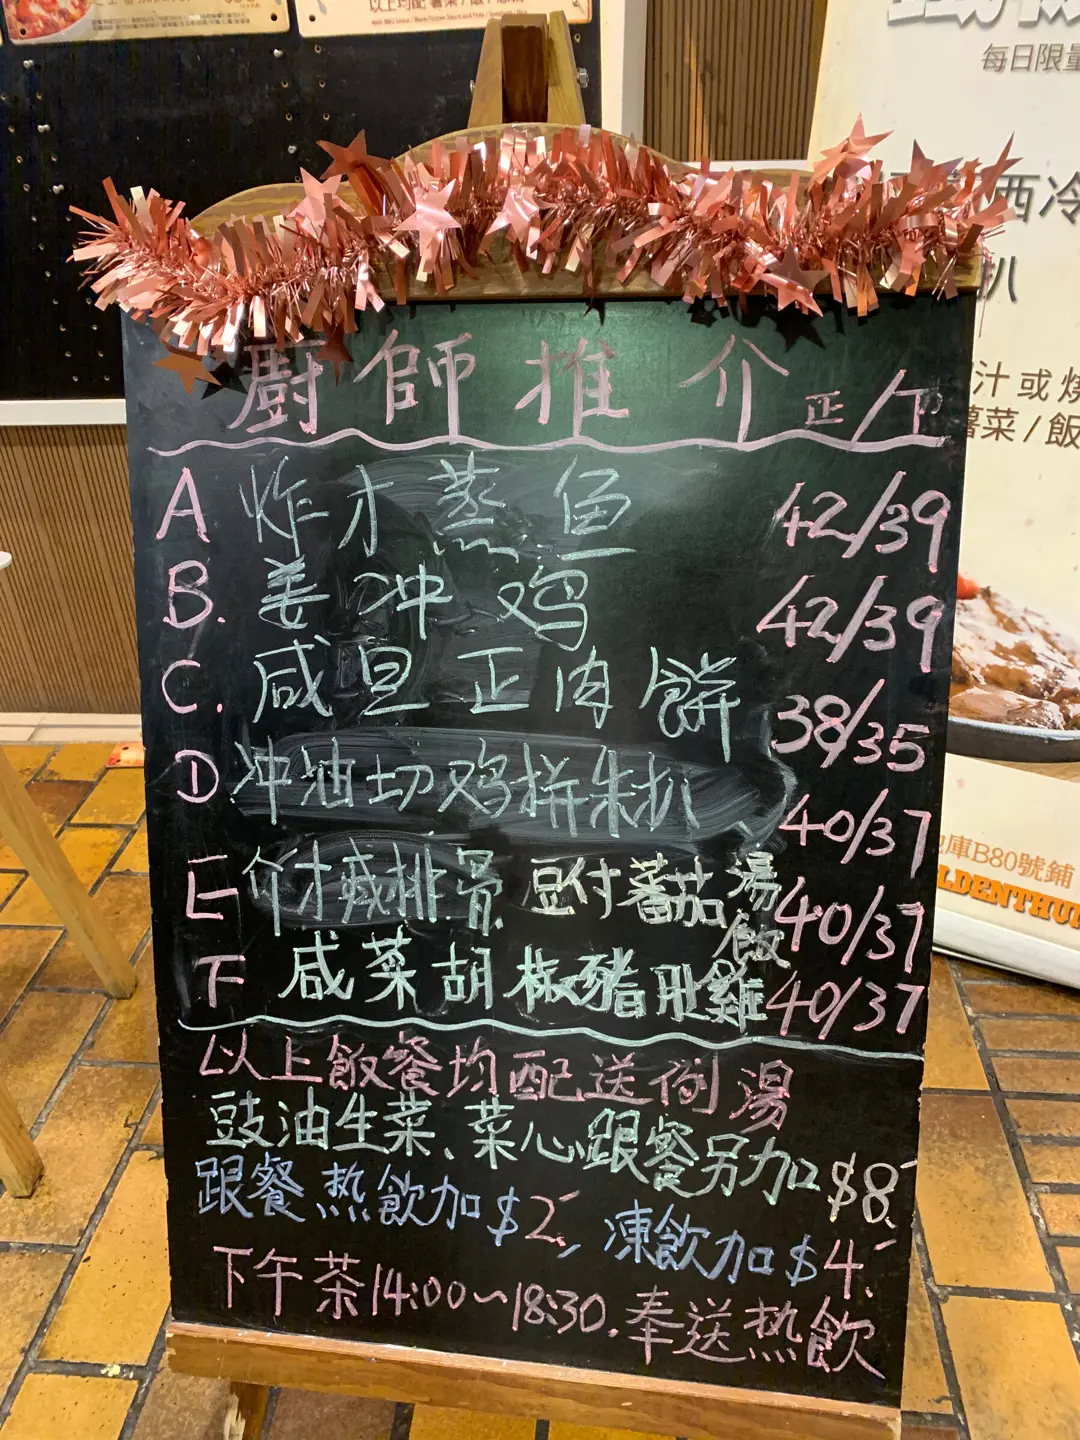 以上均配 薯菜/飯/意粉
每日限量
西冷
扒
汁或燒
薯菜/飯
廚師推介 正/下
A 炸才蒸鱼 42/39
B. 姜冲鸡 42/39
C. 咸旦正肉餅 38/35
D 冲油切鸡拼朱扒 40/37
E 介才咸排骨 豆付蕃茄湯飯 40/37
F 咸菜胡椒豬肚雞 40/37
以上飯餐均配送例湯
豉油生菜、菜心跟餐另加$8.
跟餐热飲加$2, 凍飲加$4.
下午茶14:00~18:30.奉送热飲
庫B80號鋪
LDENTHU